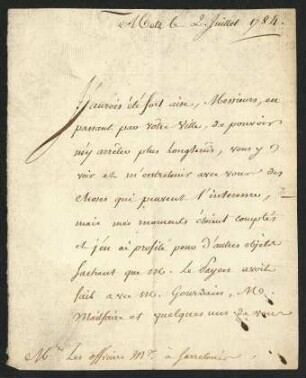 Metz le 2 Juillet 1784.
J'aurois été fort aise, Messieurs, en
passant par votre ville, de pouvoir
m'y arrêter plus longtems, vous y
voir et m'entretenir avec vous des
choses qui peuvent l'interesser,
mais mes moments étoient comptés
et j'en ai profité pour d'autres objets
sachant que M. Le Payen avoit
fait avec M. Gourdain, M.
et quelques uns de vous
Mrs Les officiers Mx à Sarrelouis.